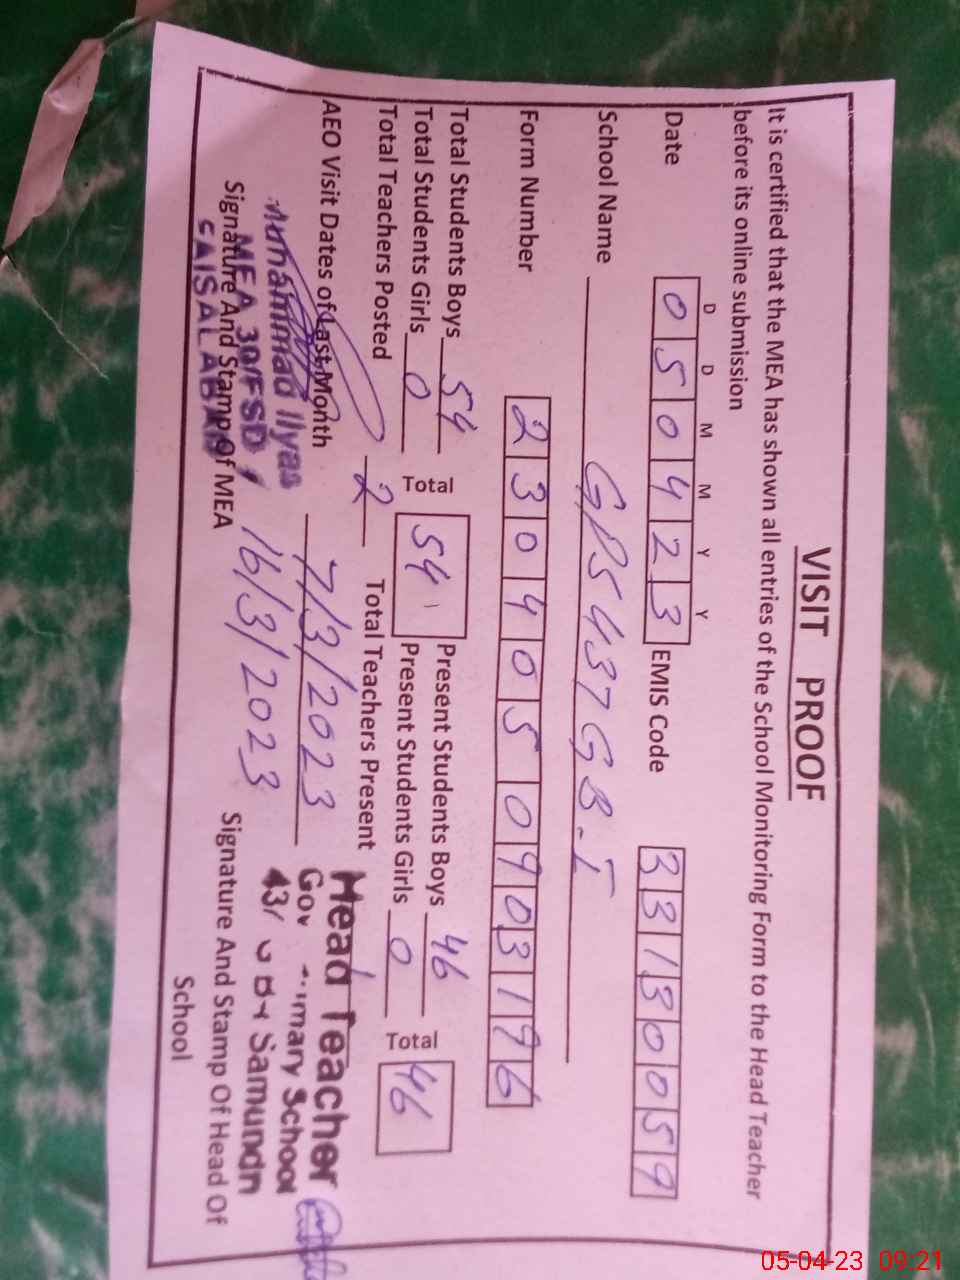 VISIT PROOF
It is certified that the MEA has shown all entries of the School Monitoring Form to the Head Teacher
before its online submission
D D M M Y Y
Date 0 5 0 4 2 3 EMIS Code 3 3 1 3 0 0 5 9
School Name GPS 437 GB.I
Form Number 2 3 0 4 0 5 0 9 0 3 1 9 6
Total Students Boys 54 Total 54 Present Students Boys 46 Total 46
Total Students Girls 0 Present Students Girls 0
Total Teachers Posted 2 Total Teachers Present
AEO Visit Dates of Last Month 7/3/2023
16/3/2023
Muhammad Ilyas
MEA 30/FSD
FAISALABAD
Signature And Stamp Of MEA
Head Teacher
School
Samundri
Signature And Stamp Of Head Of
School
05-04-23 09:21